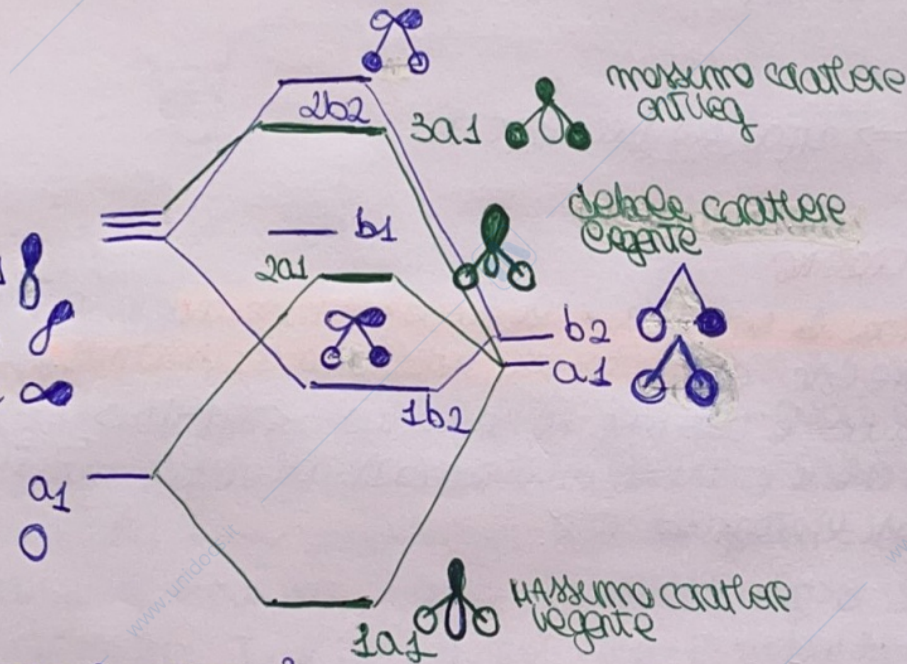 2b2
3a1
massimo carattere
antileg
b1
debole carattere
legente
2a1
b2
a1
1b2
a1
1a1
massimo carattere
legente
www.unidoc.it